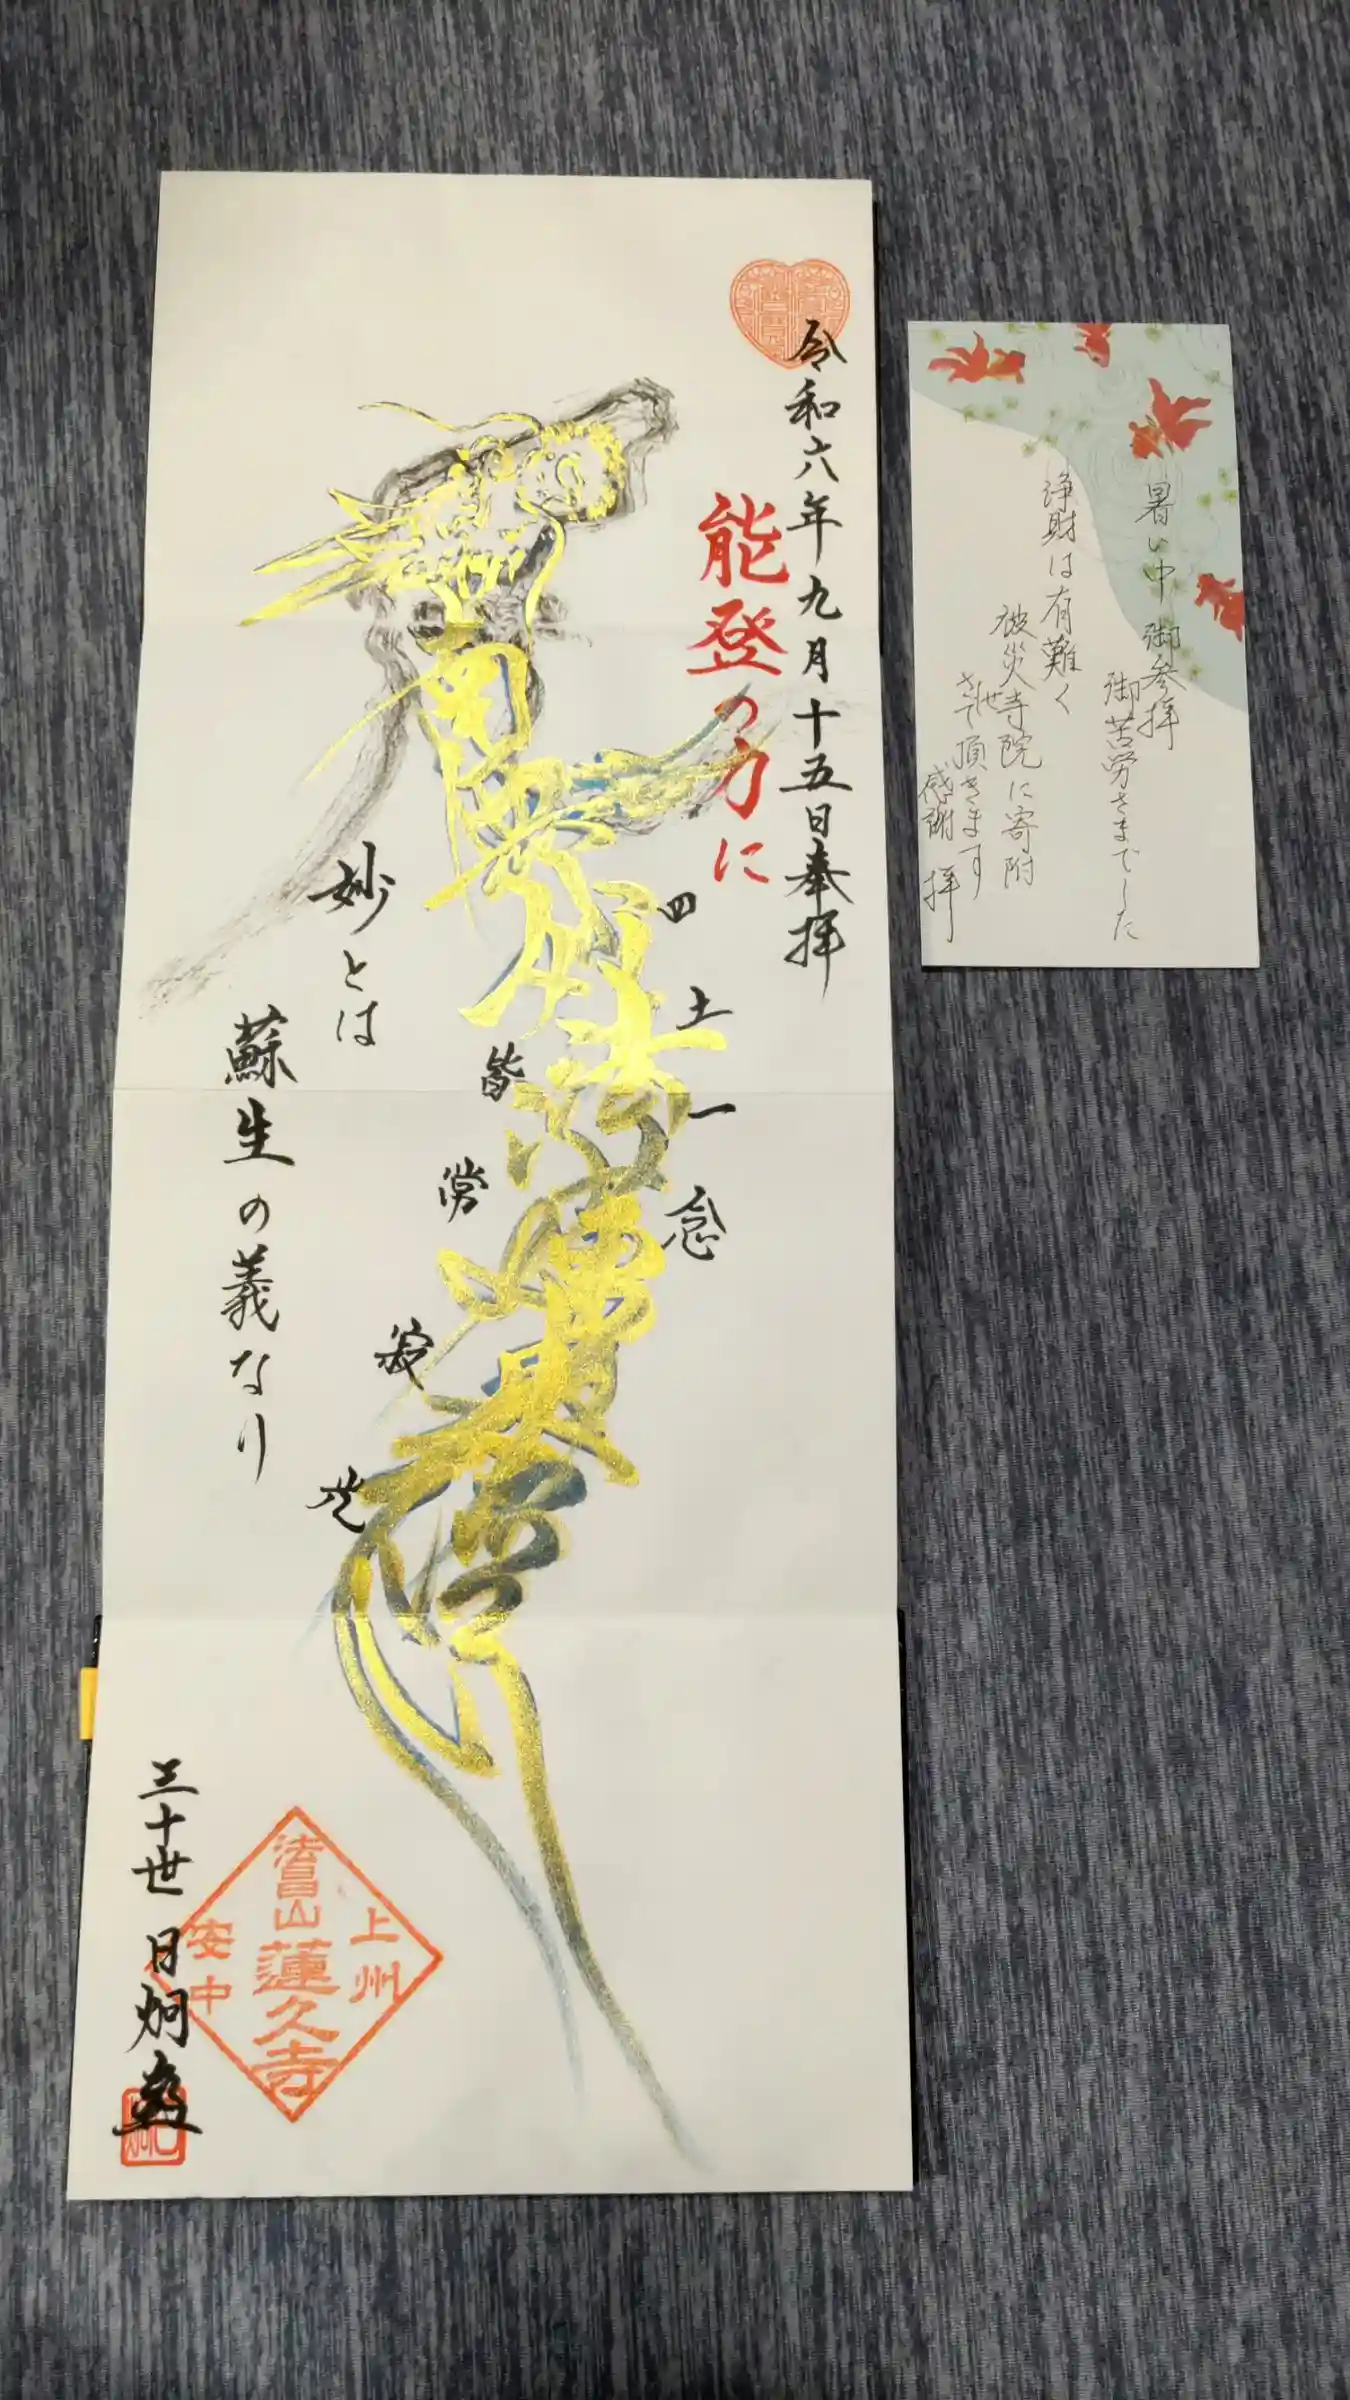 令和六年九月十五日奉拝
能登の力に
四土一念
皆常寂光
妙とは
蘇生の義なり
上州
法昌山蓮久寺
安中
三十世 日炯
暑い中 御参拝
御苦労さまでした
浄財は有難く
被災寺院に寄附
させて頂きます
感謝 拝